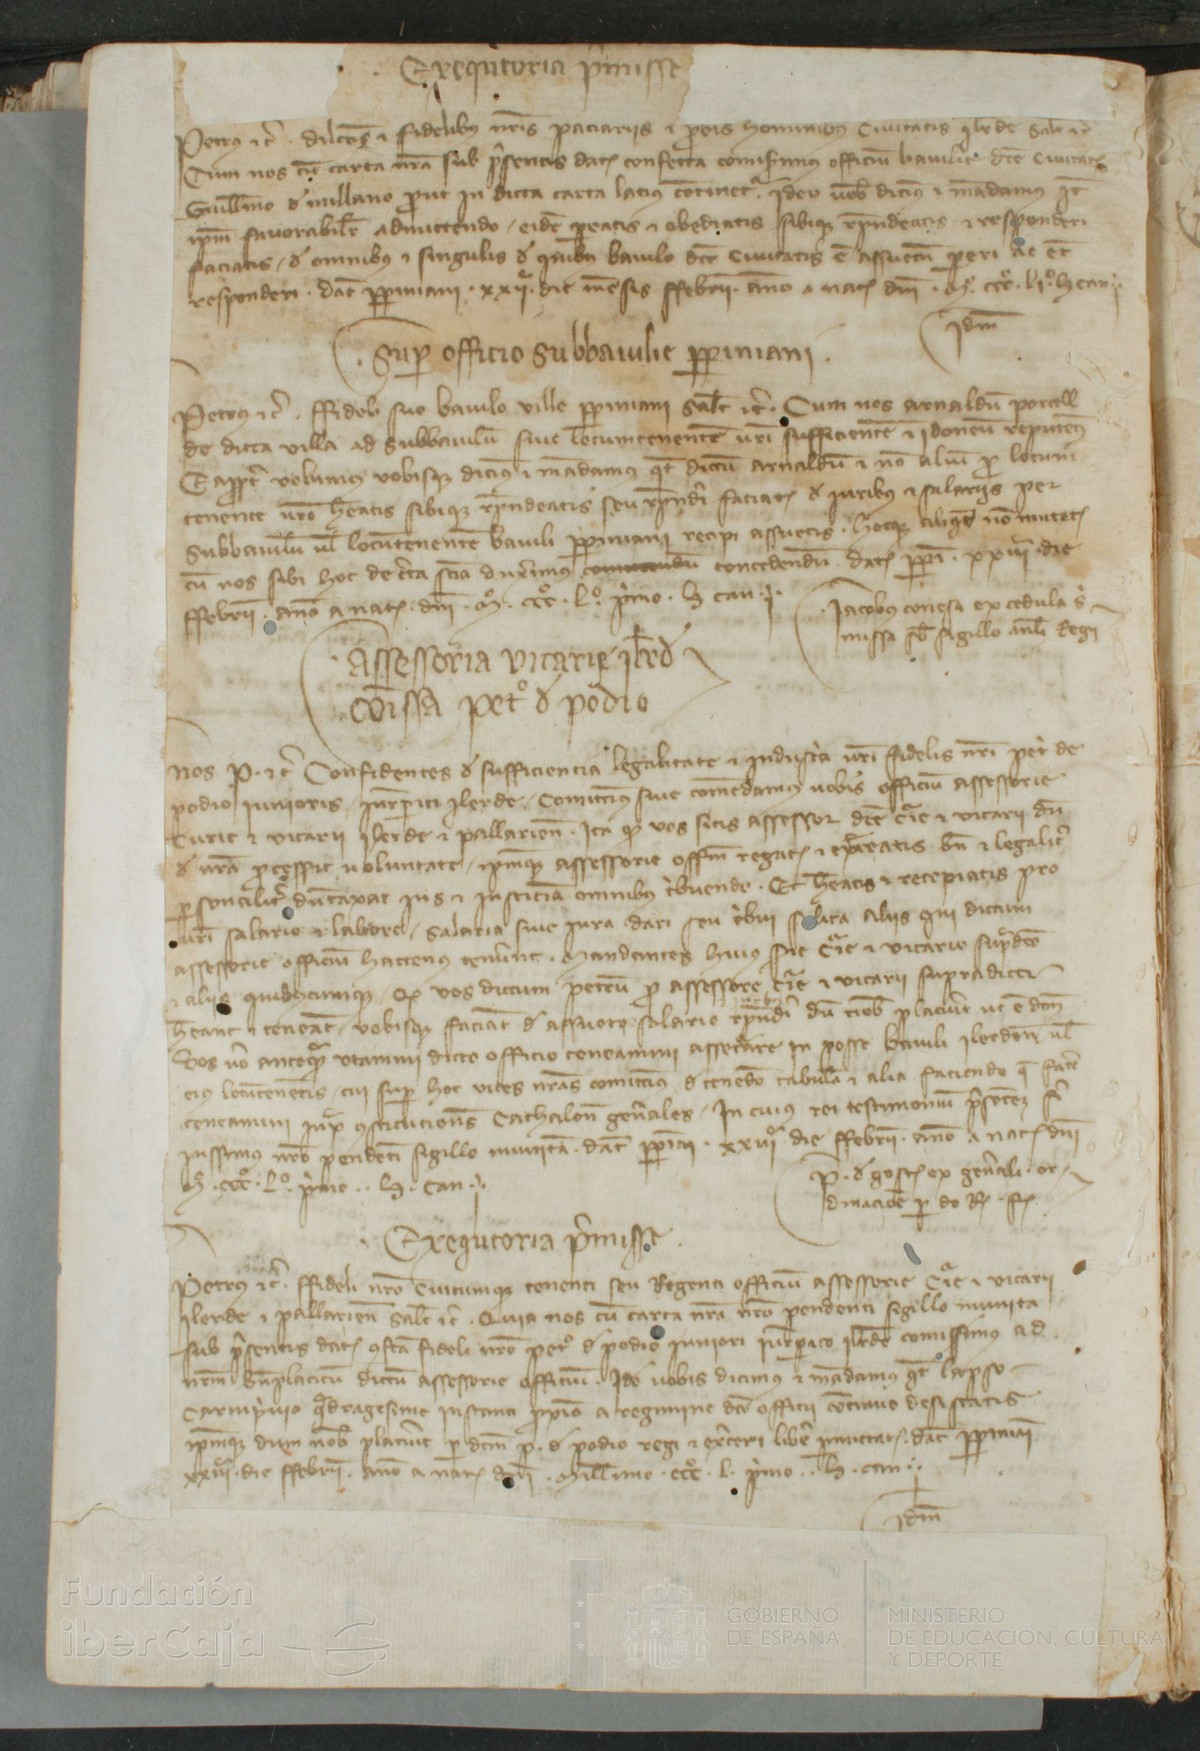 Exequtoria p'misse
Petrus etc. dilectis et fidelibus nris paciariis et pbis hominibus Civitatis Ilerde salt etc
Cum nos cu carta nra sub psentis dat confecta comiserimus officiu baiulie dce Civitatis
Guillmo de millano put in dicta carta lacius continet. Ideo vob dicim et mandamus qt
ipm favorabilr admittendo eide pareatis et obediatis sibique rpndeatis et responderi
faciatis de omnibus et singulis de quibus baiulo dce Civitatis e assuetu pareri ac et
responderi. dat ppiniani xxij die mesis ffebrii anno a nat dni M ccc Lj. H can.
Idm
Sup officio Subbaiulie ppiniani.
Petrus etc. ffideli suo baiulo ville ppiniani Salt etc. Cum nos arnaldu porcell
de dicta villa ad Subbaiulu sive locumtenente vri sufficiente et idoneu reputem
Eapropt volumus vobisque dicim et mandamus qt dictu arnaldu et no aliu p locum
tenente vro heatis sibique rpndeatis seu rpnderi faciatis de iuribus et salariis per
Subbaiulu vl locutenente baiuli ppiniani recipi assuetis. hocque aliqt no mutetis
cu nos sibi hoc de certa scia duximus concedendu. dat ppi. xxiiij die
ffebrii. anno a nat dni. M. ccc. Lo. primo. H can.
Jacobus conesa ex cedula s
missa sb sigillo Regni
Assessoria vicarie ilerd
comissa peto de podio
Nos P. etc. Confidentes de sufficiencia legalitate et industria vri fidelis nri petri de
podio iunioris iurisperiti Ilerde Comittimus sive comendamus vobis officiu assessorie
Curie et vicarii Ilerde et pallarien. Ita quod vos sitis assessor dce Curie et vicarii du
de nra pcesserit voluntate ipmque assessorie offm regatis et exerceatis bn et legalit
dutaxat ius et iusticia omnibus tribuendo. Et heatis et recipiatis pro
vri salario et labore salaria sive iura dari seu tribui solita aliis qui dictum
assessorie officiu hactenus tenuerunt. Mandantes huius serie Curie et vicario supdco
et aliis quibuscumque quod vos dictum petru p assessore Curie et vicarii supradicti
heant et teneant vobisque faciant de assueto salario rpnderi du nob placuit ut e dcm
Vos vo anteq utamini dicto officio teneamini assecurare in posse baiuli Ilerden vl
eius locutenentis cui sup hoc vices nras comittimus de tenendo tabula et alia faciendo q facere
teneamini iuxa constituciones Cathalon generales. In cuius rei testimonium psentem fi
iussimus nro pendenti sigillo munita. dat ppiniani. xxiiij die ffebrii. anno a nat dni
M. ccc. Lo. primo.. H. can.
P. de gost ex generali or
dinacioe p do R f
Exequtoria p'misse.
Petrus etc. ffideli nro Cuicumque tenenti seu Regenti officiu assessorie Curie et vicarii
Ilerde et pallarien Salt etc. Quia nos cu carta nra nro pendenti sigillo munita
sub psentis dat confta fideli nro peto de podio iuniori iurisperito ilerde comissimus ad
nrm bnplacitu dictu assessorie officiu. Ideo vobis dicimus et mandamus qt lapso
Carniprivio quadragesime instanti pximo a regimine dci officii continue desistatis
ipmque dum nob placuerit p dcm P. de podio regi et exerceri libere pmittatis. dat ppiniani
xxiiij die ffebrii. anno a nat dni. Millimo. ccc. L. primo.. H. can.
Idm
Fundación
iberCaja
GOBIERNO
DE ESPAÑA
MINISTERIO
DE EDUCACIÓN, CULTURA
Y DEPORTE